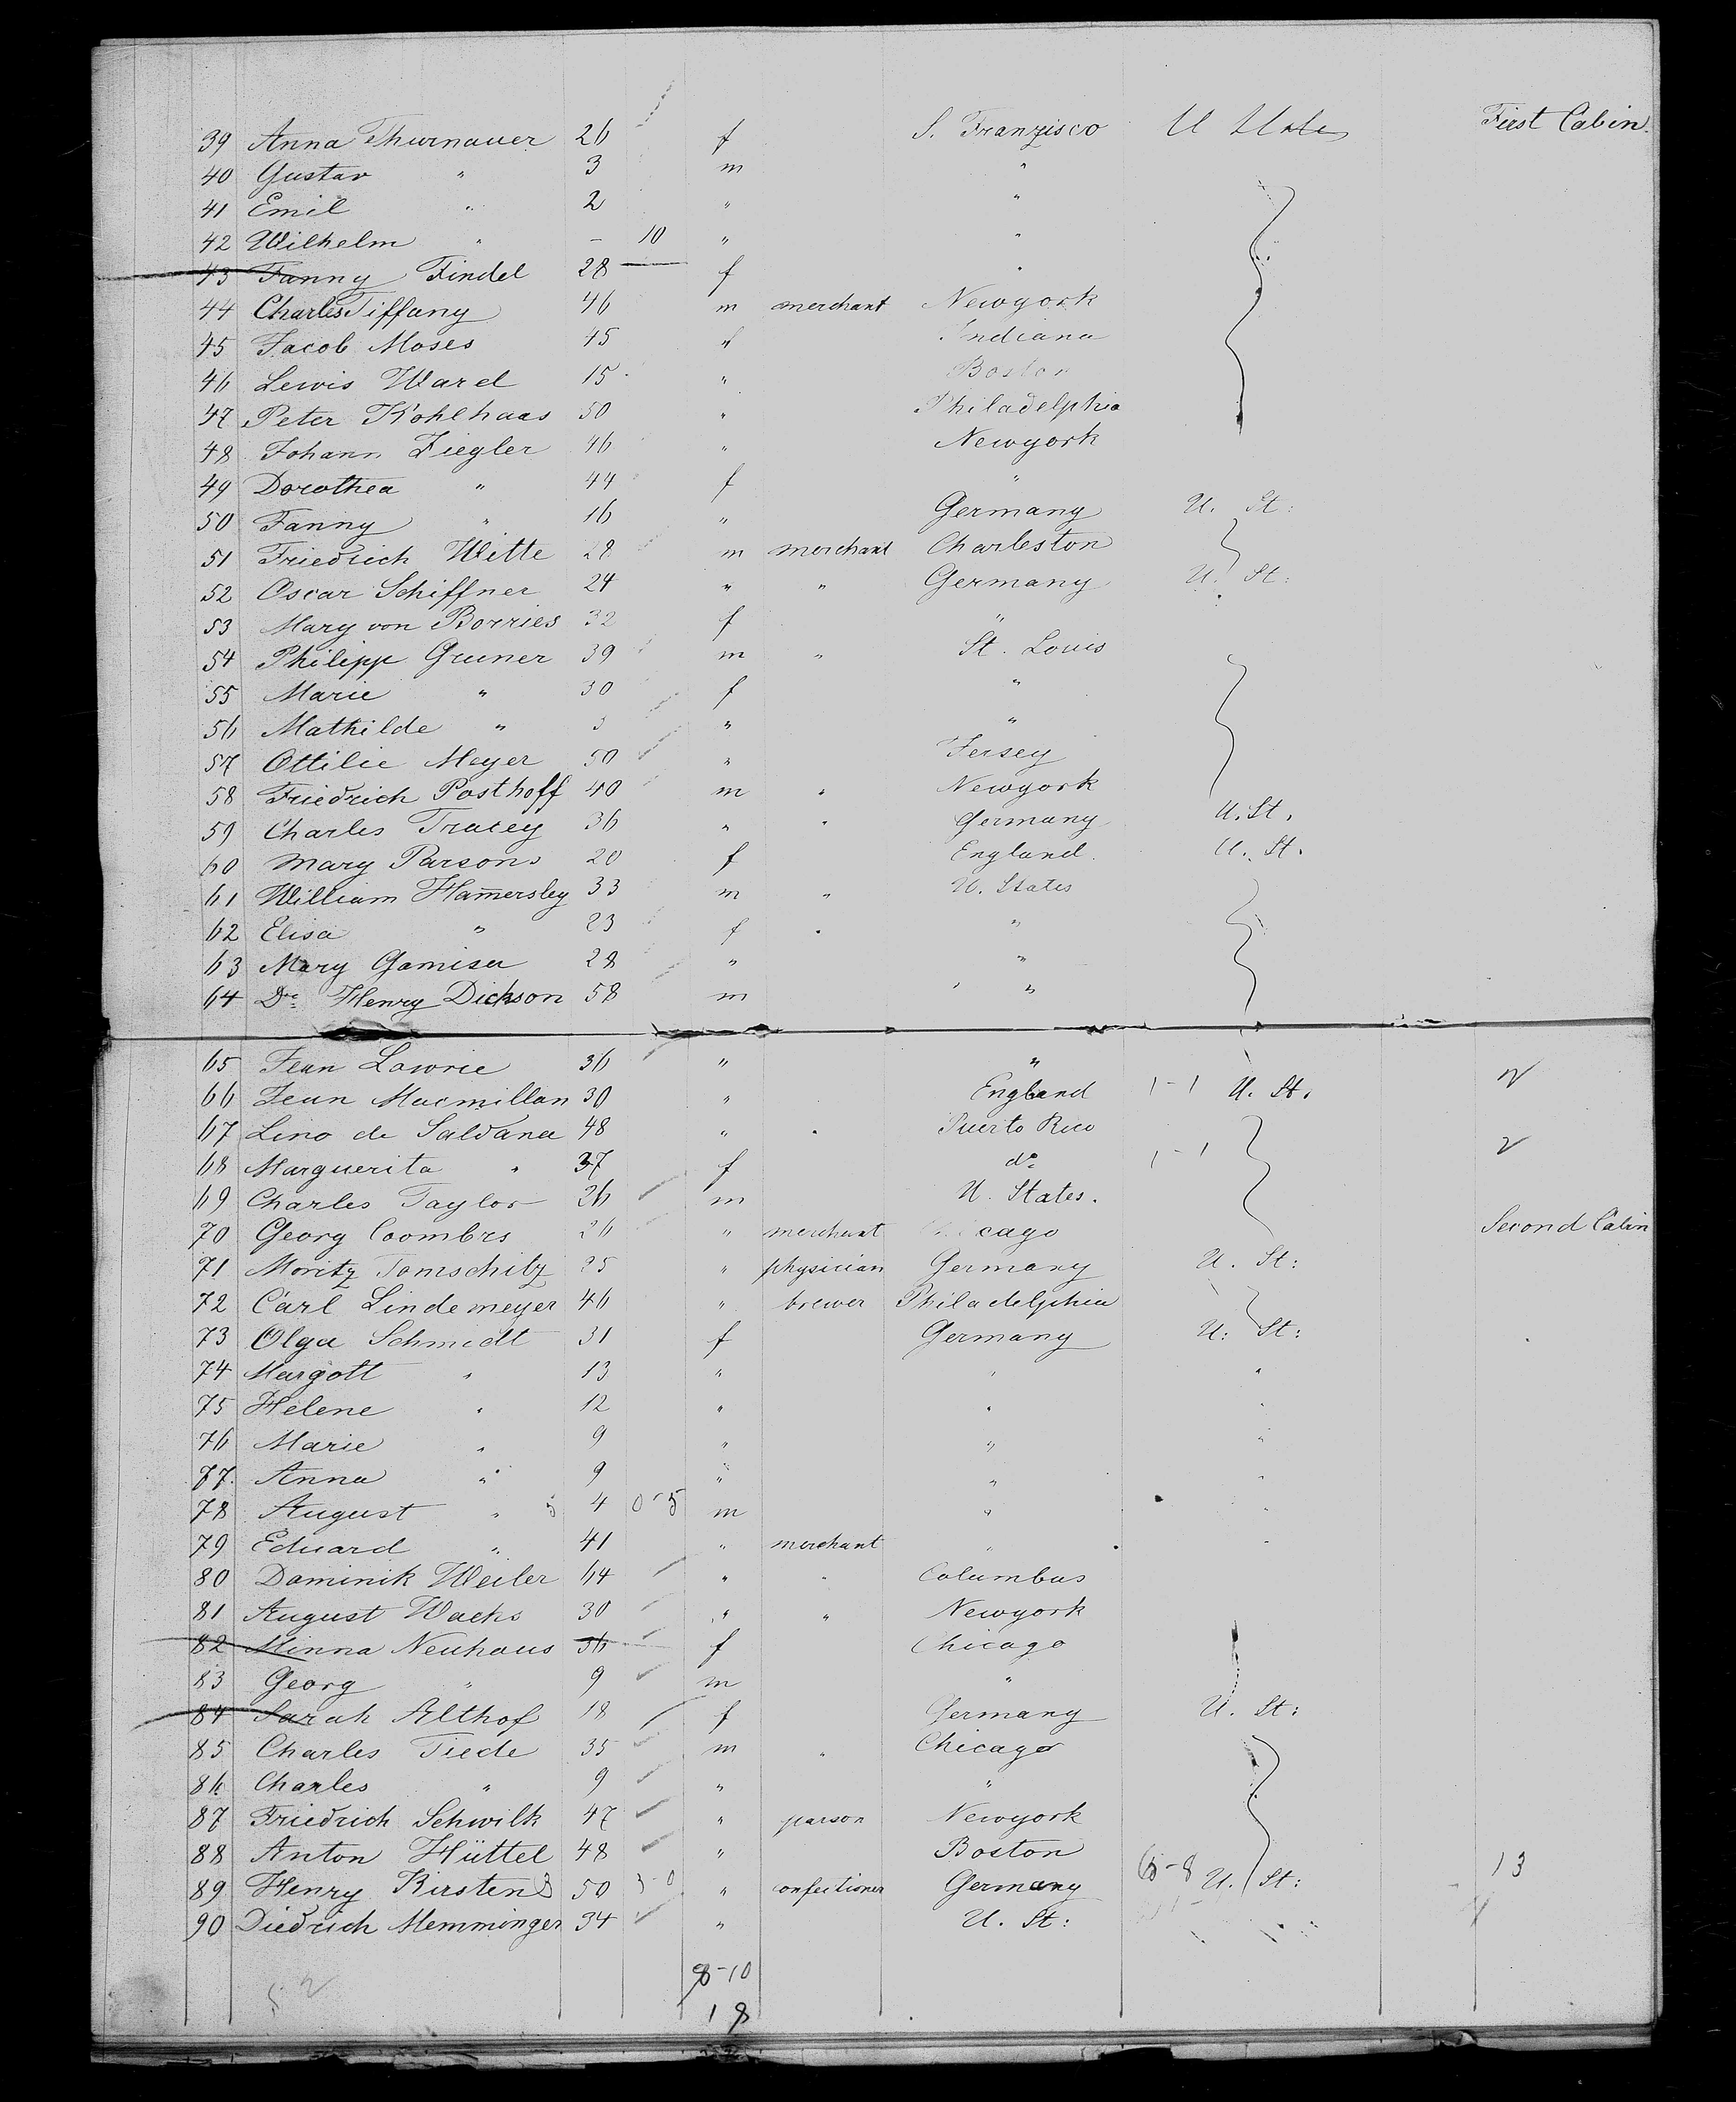 39 Anna Thurnauer 26 f S. Franzisco U States First Cabin.
40 Gustav " 3 m "
41 Emil " 2 " "
42 Wilhelm " – 10 " "
43 Fanny Findel 28 — f "
44 Charles Tiffany 46 m merchant Newyork
45 Jacob Moses 45 " Indiana
46 Lewis Warel 15 " Boston
47 Peter Kohlhaas 50 " Philadelphia
48 Johann Ziegler 46 " Newyork
49 Dorothea " 44 f "
50 Fanny " 16 " Germany U. St:
51 Friedrich Witte 28 m merchant Charleston
52 Oscar Schiffner 24 " " Germany U. St:
53 Mary von Borries 32 f "
54 Philipp Gruner 39 m " St. Louis
55 Marie " 30 f "
56 Mathilde " 3 " "
57 Ottilie Meyer 50 " Jersey
58 Friedrich Posthoff 40 m " Newyork
59 Charles Tracey 36 " " Germany U. St.
60 Mary Parsons 20 f England. U. St.
61 William Ham̅ersley 33 m " U. States
62 Elisa " 23 f "
63 Mary Gamisa 28 " "
64 Dr. Henry Dickson 58 m "
65 Jean Lowrie 36 " "
66 Jean Macmillan 30 " England 1-1 U. St.
67 Lino de Saldana 48 " " Puerto Rico
68 Marguerita " 37 f do 1-1
69 Charles Taylor 26 m U. States.
70 Georg Coombrs 26 " merchant Chicago Second Cabin
71 Moritz Tomschitz 25 " physician Germany U. St:
72 Carl Lindemeyer 46 " brewer Philadelphia
73 Olga Schmidt 31 f Germany U: St:
74 Margott " 13 " " "
75 Helene " 12 " " "
76 Marie " 9 " " "
77. Anna " 9 " " "
78 August " 5 4 0-5 m " "
79 Eduard " 41 " merchant " "
80 Dominik Weiler 64 " " Columbus
81 August Wachs 30 " " Newyork
82 Minna Neuhaus 36 f Chicago
83 Georg " 9 m "
84 Sarah Althof 18 f Germany U. St:
85 Charles Tiede 35 m " Chicago
86 Charles " 9 " "
87 Friedrich Schwilk 47 " parson Newyork
88 Anton Hüttel 48 " Boston
89 Henry Kirsten 50 3-0 " confectioner Germany 6-8 U. St: 13
90 Diedrich Memminger 34 " U. St:
8-10
18